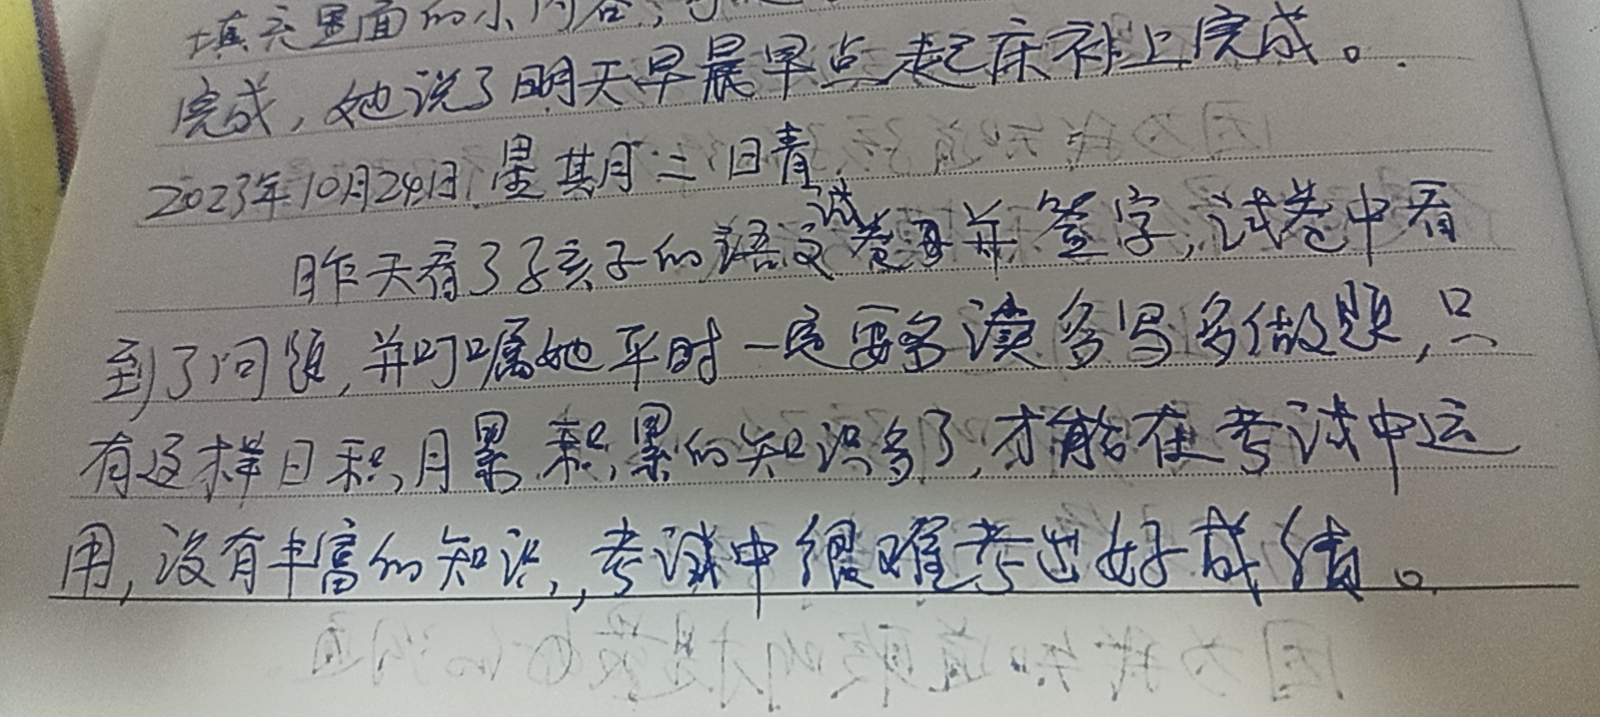 填充里面的小内容,
完成,她说了明天早晨早点起床补上完成。
2023年10月24日 星其月二 日青
昨天看了了孩子的语文试卷并签字,试卷中看
到了问题,并叮嘱她平时一定要多读多写多做题,只
有这样日积月累,积累的知识多了,才能在考试中运
用,没有丰富的知识,考试中很难考出好成绩。